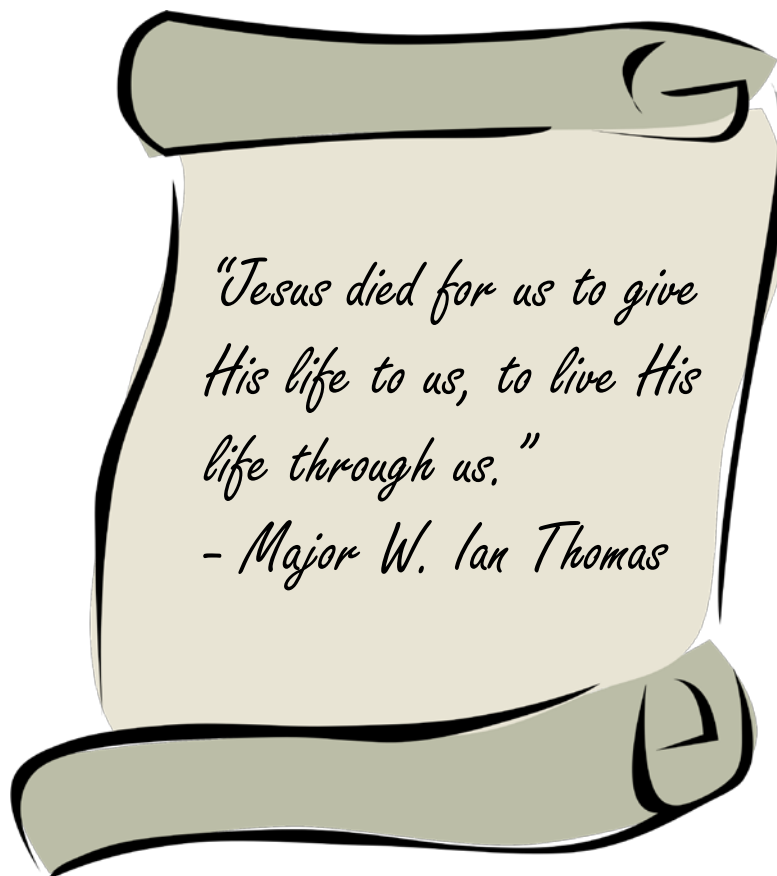 “Jesus died for us to give
His life to us, to live His
life through us.”
- Major W. Ian Thomas